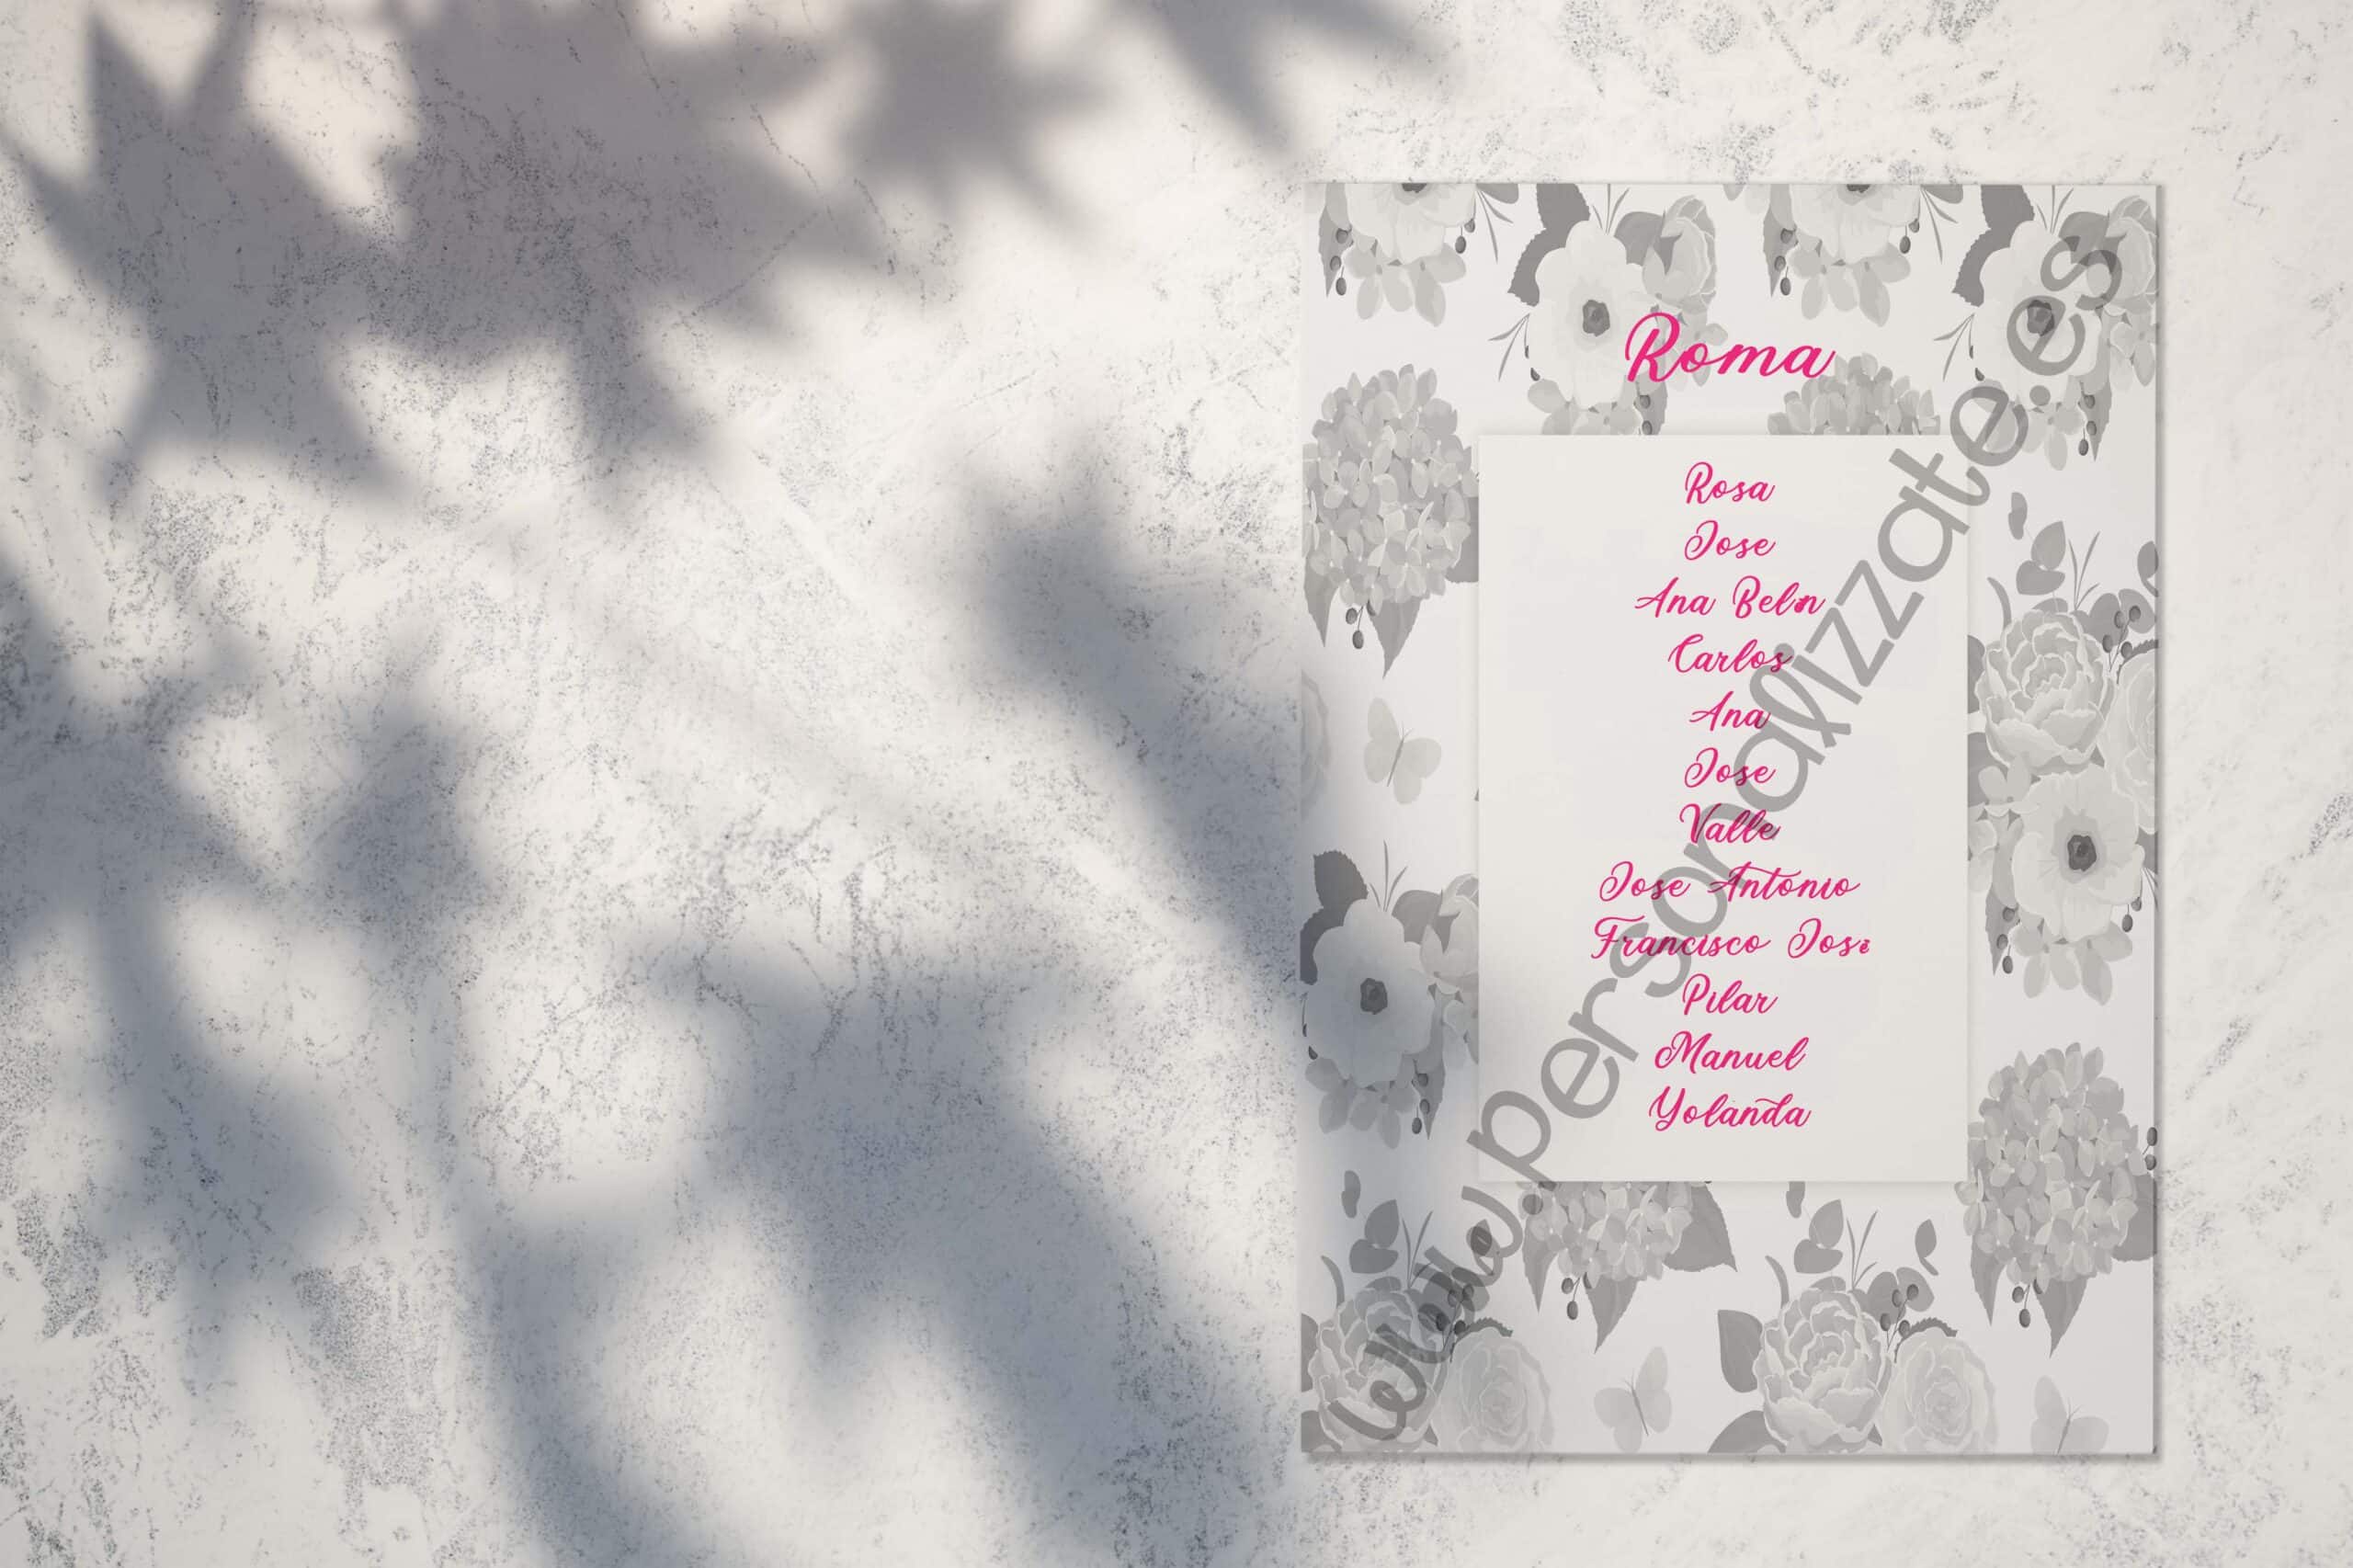 Roma
Rosa
Jose
Ana Belén
Carlos
Ana
Jose
Valle
Jose Antonio
Francisco José
Pilar
Manuel
Yolanda
www.personalizzate.es